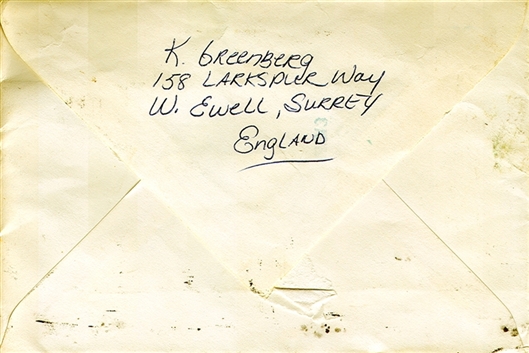 K. Greenberg
158 Larkspur Way
W. Ewell, Surrey
England